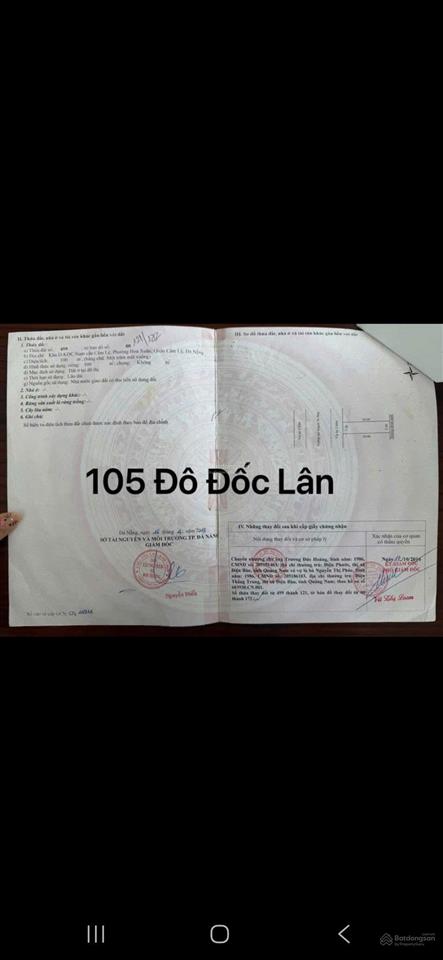 II. Thửa đất, nhà ở và tài sản khác gắn liền với đất
1. Thửa đất:
a) Thửa đất số: tờ bản đồ số:
121/172
b) Địa chỉ: Khu D KDC Nam cầu Cẩm Lệ, Phường Hoà Xuân, Quận Cẩm Lệ, Đà Nẵng
c) Diện tích: 100 m², (bằng chữ: Một trăm mét vuông)
d) Hình thức sử dụng: riêng: 100 m²; chung: Không m²
đ) Mục đích sử dụng: Đất ở tại đô thị
e) Thời hạn sử dụng: Lâu dài
g) Nguồn gốc sử dụng: Nhà nước giao đất có thu tiền sử dụng đất
2. Nhà ở: -/-
3. Công trình xây dựng khác: -/-
4. Rừng sản xuất là rừng trồng: -/-
5. Cây lâu năm: -/-
6. Ghi chú:
Số hiệu và diện tích thửa đất chưa được xác định theo bản đồ địa chính.
Đà Nẵng, ngày tháng năm
SỞ TÀI NGUYÊN VÀ MÔI TRƯỜNG TP. ĐÀ NẴNG
GIÁM ĐỐC
Nguyễn Điểu
III. Sơ đồ thửa đất, nhà ở và tài sản khác gắn liền với đất
105 Đô Đốc Lân
IV. Những thay đổi sau khi cấp giấy chứng nhận
Nội dung thay đổi và cơ sở pháp lý
Xác nhận của cơ quan có thẩm quyền
Chuyển nhượng cho ông Trương Đức Hoàng, Sinh năm: 1986,
CMND số: địa chỉ thường trú: Điện Phước, thị xã
Điện Bàn, tỉnh Quảng Nam và vợ là bà Nguyễn Thị Phúc, Sinh
năm: 1986, CMND số: 205186183, địa chỉ thường trú: Điện
Thắng Trung, thị xã Điện Bàn, tỉnh Quảng Nam; theo hồ sơ số
Số thửa thay đổi từ 499 thành 121, tờ bản đồ thay đổi từ
thành 172
/10/2016
KT.GIÁM ĐỐC
PHÓ GIÁM ĐỐC
Batdongsan
by PropertyGuru